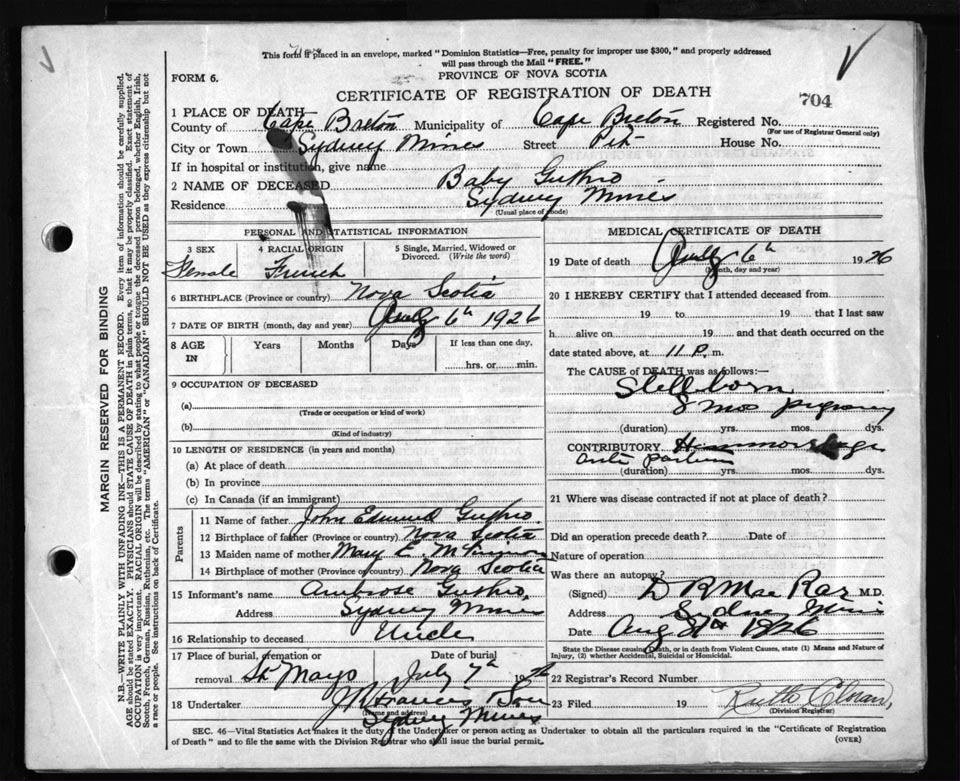 This form if placed in an envelope, marked "Dominion Statistics—Free, penalty for improper use $300," and properly addressed
will pass through the Mail "FREE."
PROVINCE OF NOVA SCOTIA
FORM 6.
CERTIFICATE OF REGISTRATION OF DEATH
704
1 PLACE OF DEATH
County of Cape Breton Municipality of Cape Breton Registered No.
(For use of Registrar General only)
City or Town Sydney Mines Street Pit House No.
If in hospital or institution, give name
2 NAME OF DECEASED Baby Guthro
Residence Sydney Mines
(Usual place of abode)
PERSONAL AND STATISTICAL INFORMATION
3 SEX 4 RACIAL ORIGIN 5 Single, Married, Widowed or Divorced. (Write the word)
Female French
6 BIRTHPLACE (Province or country) Nova Scotia
7 DATE OF BIRTH (month, day and year) July 6th 1926
8 AGE IN Years Months Days If less than one day, hrs. or min.
9 OCCUPATION OF DECEASED
(a)
(Trade or occupation or kind of work)
(b)
(Kind of industry)
10 LENGTH OF RESIDENCE (in years and months)
(a) At place of death
(b) In province
(c) In Canada (if an immigrant)
Parents
11 Name of father John Edmund Guthro.
12 Birthplace of father (Province or country) Nova Scotia
13 Maiden name of mother Mary E.
14 Birthplace of mother (Province or country) Nova Scotia
15 Informant's name Ambrose Guthro.
Address Sydney Mines
16 Relationship to deceased Uncle
17 Place of burial, cremation or removal Date of burial
St Mary's July 7th 1926
18 Undertaker & Son
(name and address)
Sydney Mines
MEDICAL CERTIFICATE OF DEATH
19 Date of death July 6th 1926
(Month, day and year)
20 I HEREBY CERTIFY that I attended deceased from
19 to 19 that I last saw
h alive on 19 and that death occurred on
date stated above, at 11 P. m.
The CAUSE of DEATH was as follows:—
Stillborn
8 mos
(duration) yrs. mos. dys.
CONTRIBUTORY
ante partum
(duration) yrs. mos. dys.
21 Where was disease contracted if not at place of death?
Did an operation precede death? Date of
Nature of operation
Was there an autopsy?
(Signed) D R Mac Rae M.D.
Address Sydney Mines
Date Aug 1926
State the Disease causing Death, or in death from Violent Causes, state (1) Means and Nature of
Injury, (2) whether Accidental, Suicidal or Homicidal.
22 Registrar's Record Number
23 Filed 19 Ruth
(Division Registrar)
SEC. 46—Vital Statistics Act makes it the duty of the Undertaker or person acting as Undertaker to obtain all the particulars required in the "Certificate of Registration
of Death" and to file the same with the Division Registrar who shall issue the burial permit.
(OVER)
MARGIN RESERVED FOR BINDING
N.B.—WRITE PLAINLY WITH UNFADING INK—THIS IS A PERMANENT RECORD. Every item of information should be carefully supplied.
AGE should be stated EXACTLY. PHYSICIANS should STATE CAUSE OF DEATH in plain terms, so that it may be properly classified. Exact statement of
OCCUPATION is very important. RACIAL ORIGIN will be described by stating to what people or tongue the deceased person belonged, whether English, Irish,
Scotch, French, German, Russian, Ruthenian, etc. The terms "AMERICAN" or "CANADIAN" SHOULD NOT BE USED as they express citizenship but not
a race or people. See instructions on back of Certificate.